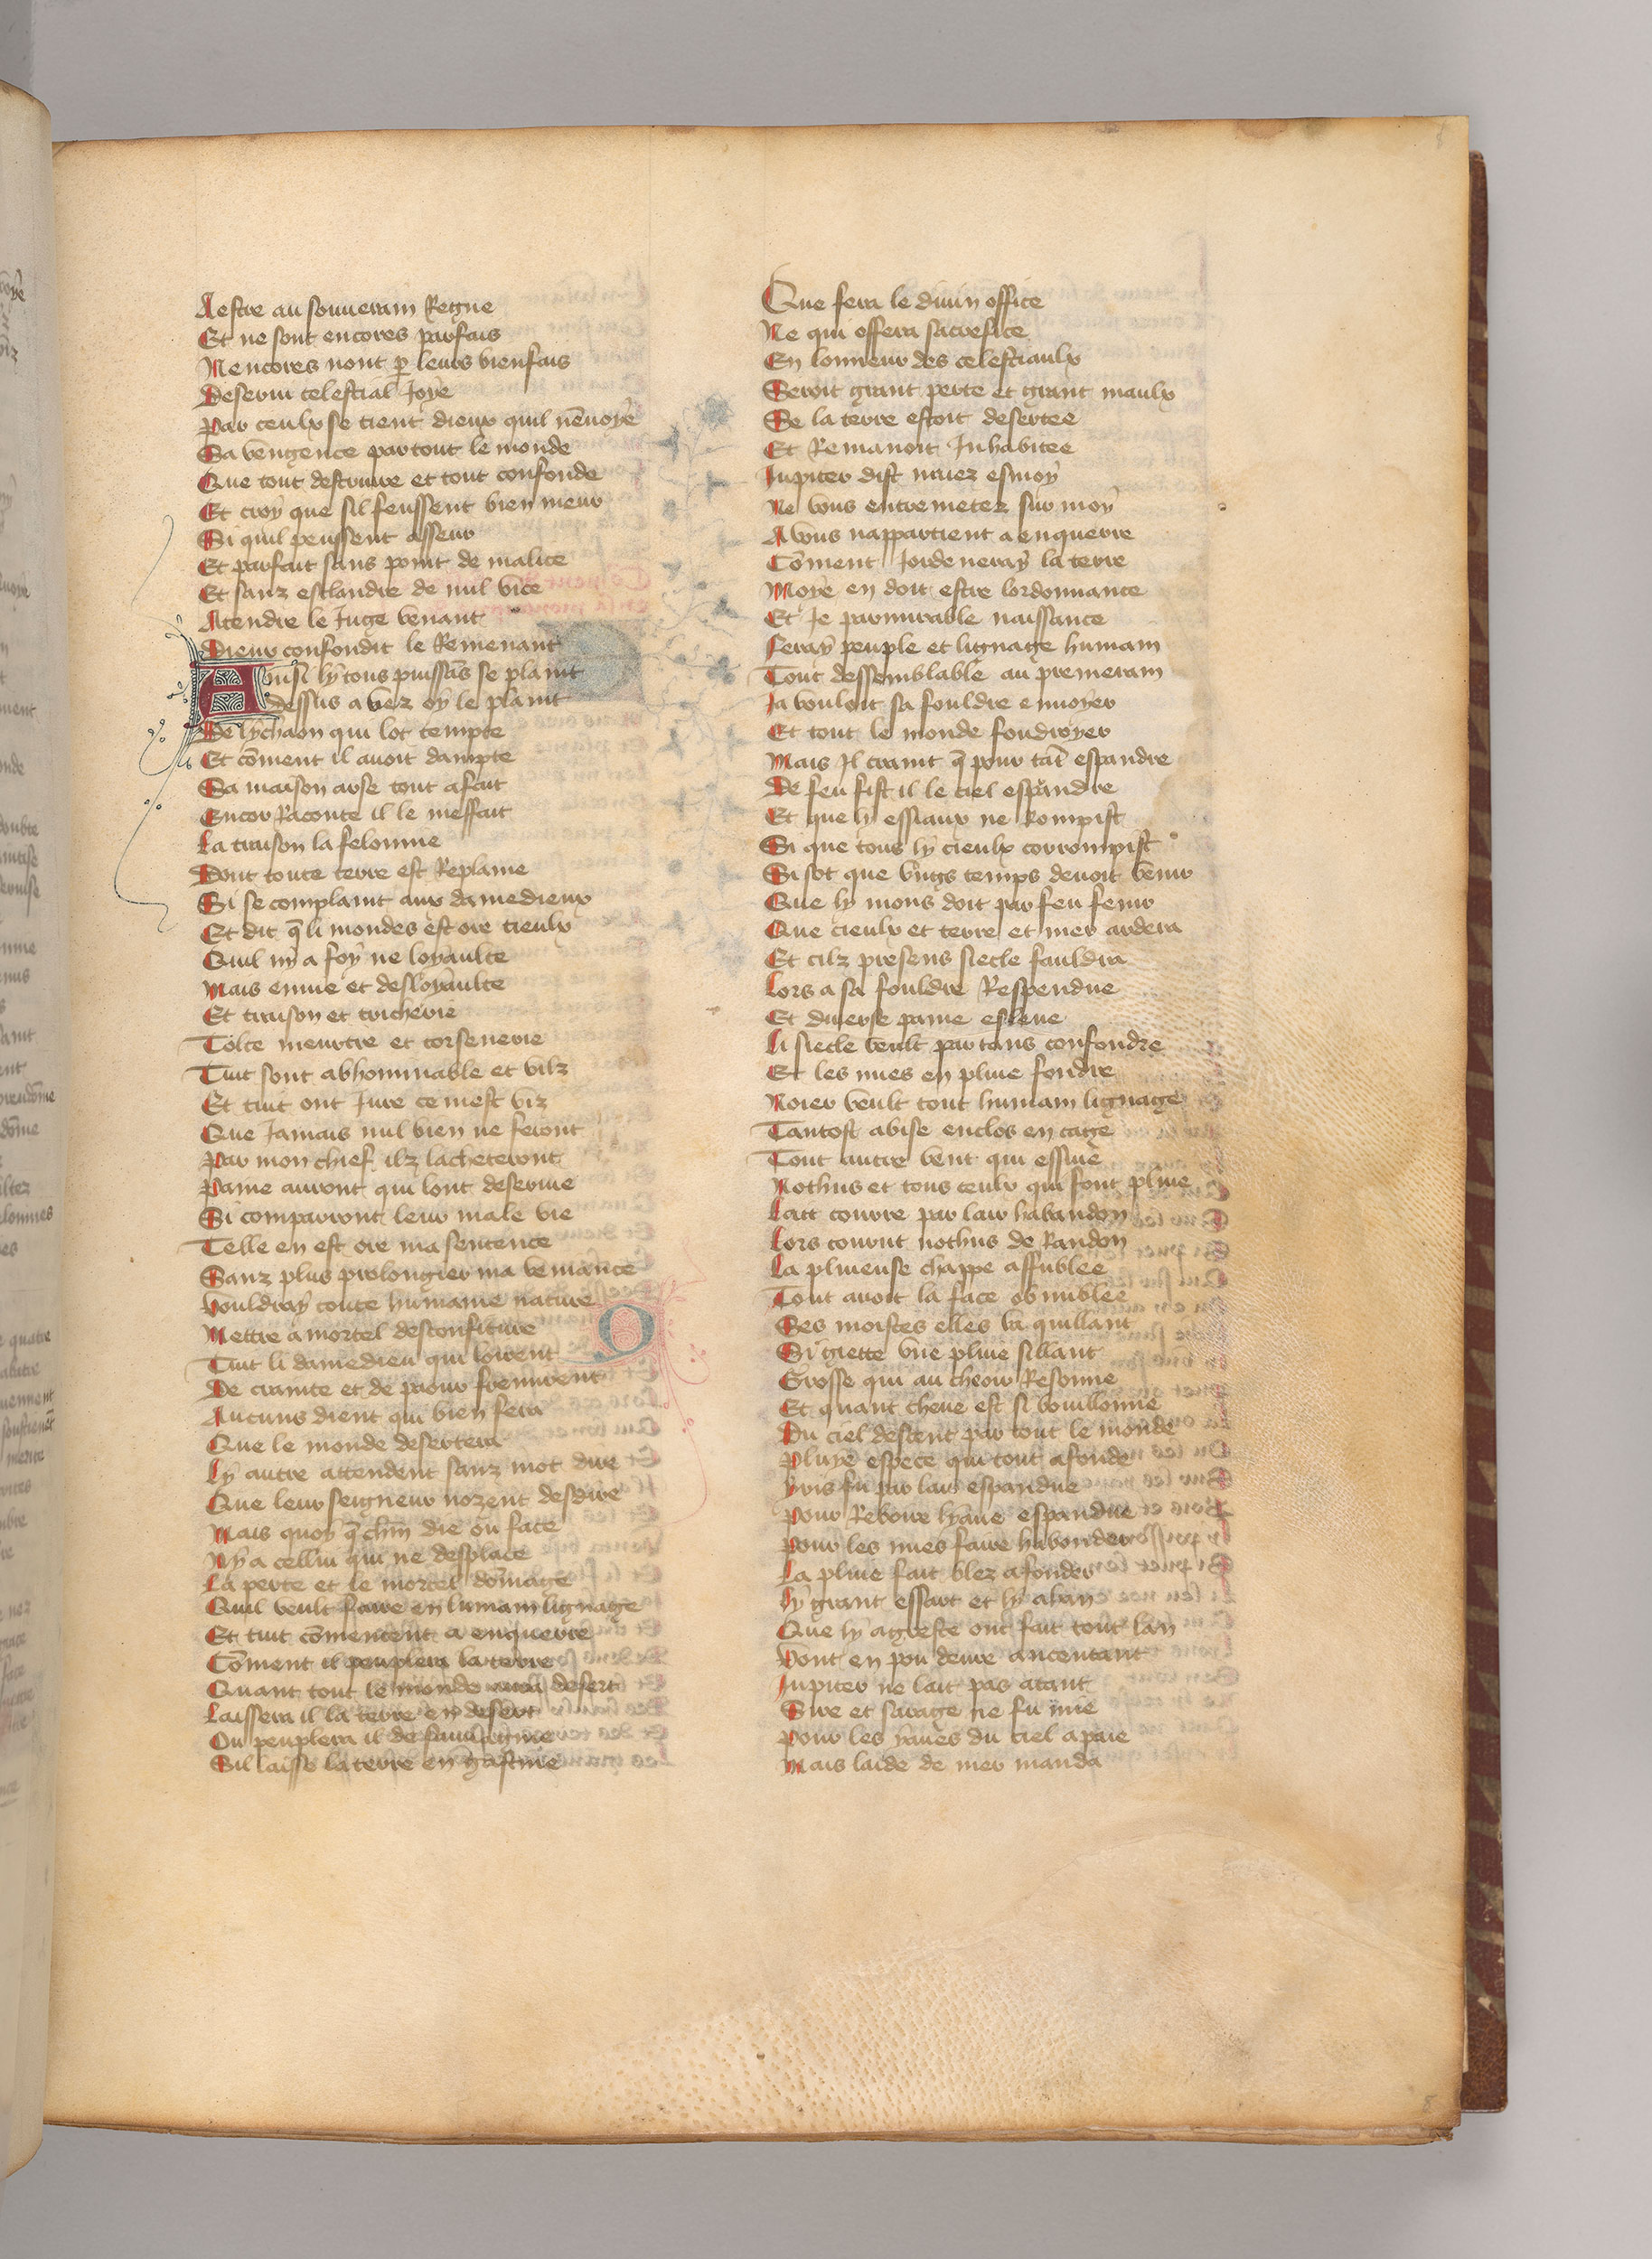 Aestre au souverain Regne
Et ne sont encores parfais
Ne encores nont p leurs bienfais
Deservi celestial Joye
Par ceulx se tient dieux quil nēvoye
Sa vengence par tout le monde
Que tout destruire et tout confonde
Et croy que sil feussent bien meur
Si quil peussent asseur
Et parfait sans point de malice
Et sanz esclandre de nul vice
Atendre le Juge venant
Dieux confondit le Remenant
Ainsi ly tous puissās se plaint
Dessus avez oy le plaint
De lychaon qui lot tempte
Et cōment il avoit dampte
Sa maison arse tout a fait
Encor Raconte il le meffait
La traison la felonnie
Dont toute terre est Replaine
Si se complaint aux damedieux
Et dit q̄ li mondes est ore tieulx
Quil ny a foy ne loyaulte
Mais envie et desloyaulte
Et traison et tricherie
Tolte meurtre et torsenerie
Tuit sont abhominable et vilz
Et tuit ont Jure ce mest viz
Que Jamais nul bien ne feront
Par mon chief ilz lacheteront
Paine auront qui lont deservie
Si comparront leur male vie
Telle en est ore ma sentence
Sanz plus prolongier ma veniance
Vouldray toute humaine nature
Mettre a mortel desconfiture
Tuit li damedieu qui loirent
De crainte et de paour fremirent
Aucuns dient qui bien fera
Que le monde desertera
Ly autre attendent sanz mot dire
Que leur seigneur nozent desdire
Mais quoy q̄ chūn die ou face
Ny a celluy qui ne desplace
La perte et le mortel dōmage
Quil veult faire en lumain lignage
Et tuit cōmencent a enquerre
Cōment il peuplera la terre
Quant tout le monde aura desert
Laissera il la terre en desert
Ou peuplera il de sauvagine
Sil laisse la terre en gastine
Que fera le divin office
Ne qui offera sacrefice
En lonneur des celestiaulx
Seroit grant perte et grant maulx
Se la terre estoit desertee
Et Remanoit Inhabitee
Jupiter dist naiez esmoy
Ne vous entremetez sur moy
A vous nappartient a enquerre
Cōment Jordeneray la terre
Moye en doit estre lordonnance
Et Je par mirable naissance
Feray peuple et lignage humain
Tout dessemblable au premerain
Ja vouloit sa fouldre envoyer
Et tout le monde foudroyer
Mais Il craint q̄ pour tāt espandre
De feu fist il le ciel espandre
Et que ly essiaux ne Rompist
Si que tous ly cieulx corrompist
Si sot que vngs temps devoit venir
Que ly mons doit par feu fenir
Que cieulx et terre et mer ardera
Et cilz presens siecle fauldra
Lors a sa fouldre Respendue
Et diverse paine esleue
Li siecle veult par tans confondre
Et les nues en pluie fondre
Noier veult tout humain lignage
Tantost abise enclos en cage
Tout autre vent qui essuie
Nothus et tous ceulx qui font pluie
Lait courre par lair habandon
Lors courut nothus de Randon
La pluieuse chappe affublee
Tout avoit la face obnublee
Ses moistes elles va quillant
Si giette vne pluie sillant
Grosse qui au cheoir Resonne
Et quant cheue est si bouillonne
Du ciel descent par tout le monde
Pluye espece qui tout afonde
Yris fu par lair espandue
Pour Reboire lyaue espandue
Pour les nues faire habonder
La pluie fait blez afonder
Ly grant essart et ly ahan
Que ly agreste ont fait tout lan
Vont en pou deure ancentant
Jupiter ne lait pas atant
Sire et sarage ne fu mie
Pour les yaues du ciel apaie
Mais laide de mer manda